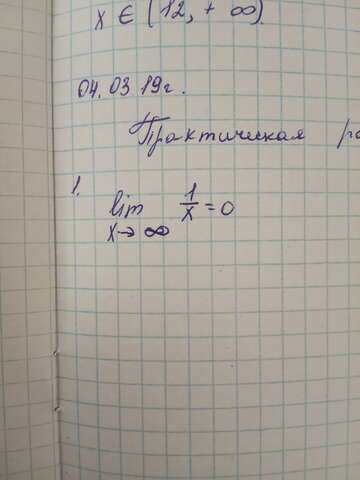 x ∈ (12, + ∞)
04.03 19г.
Практическая
1.
lim 1/x = 0
x → ∞